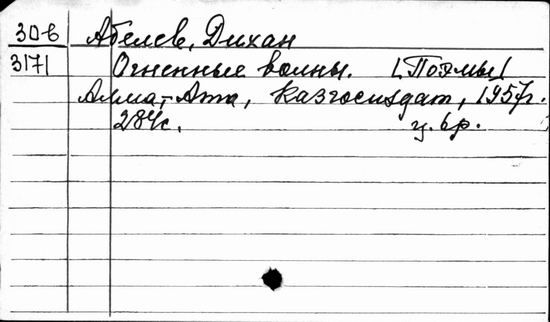 30-6 Абелев, Дихан
3171 Огненные волны. [Поэмы]
Алма-Ата, Казгосиздат, 1957г.
284с. ц. 6р.